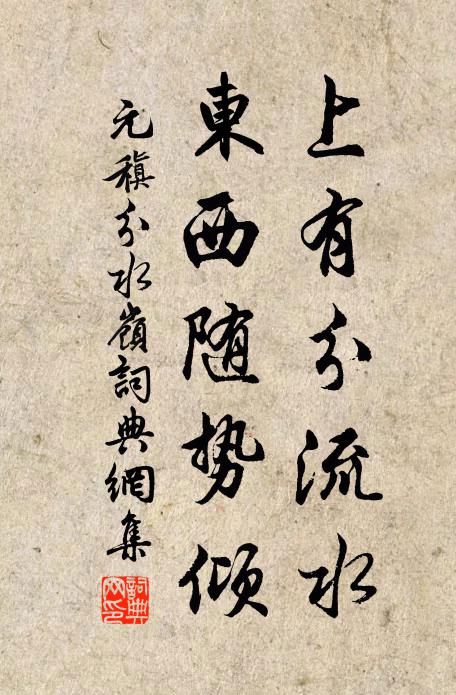 上有分流水
東西随势傾
元稹分水嶺詞典網集
詞典網印